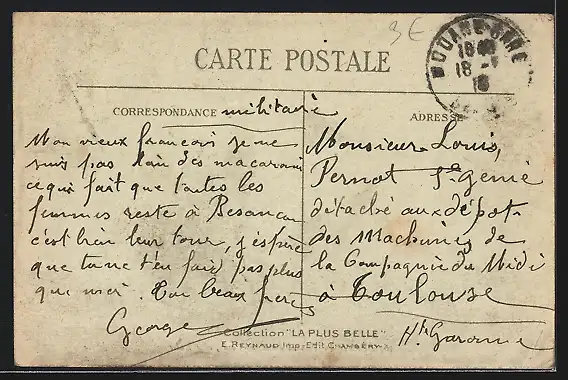 3E
CARTE POSTALE
DOUANE-GARE
18
CORRESPONDANCE militaire
ADRESSE
Mon vieux francois je ne
suis pas loin des macaroni
ce qui fait que toutes les
femmes reste à Besancon
c'est bien leur tour, j'espère
que tu ne t'en fais pas plus
que moi. Ton beau frère
George
Monsieur Louis,
Pernot St Genie
détaché aux dépot
des Machines de
la Compagnie du Midi
à Toulouse
Hte Garonne
Collection "LA PLUS BELLE"
E. REYNAUD Imp.-Edit CHAMBÉRY